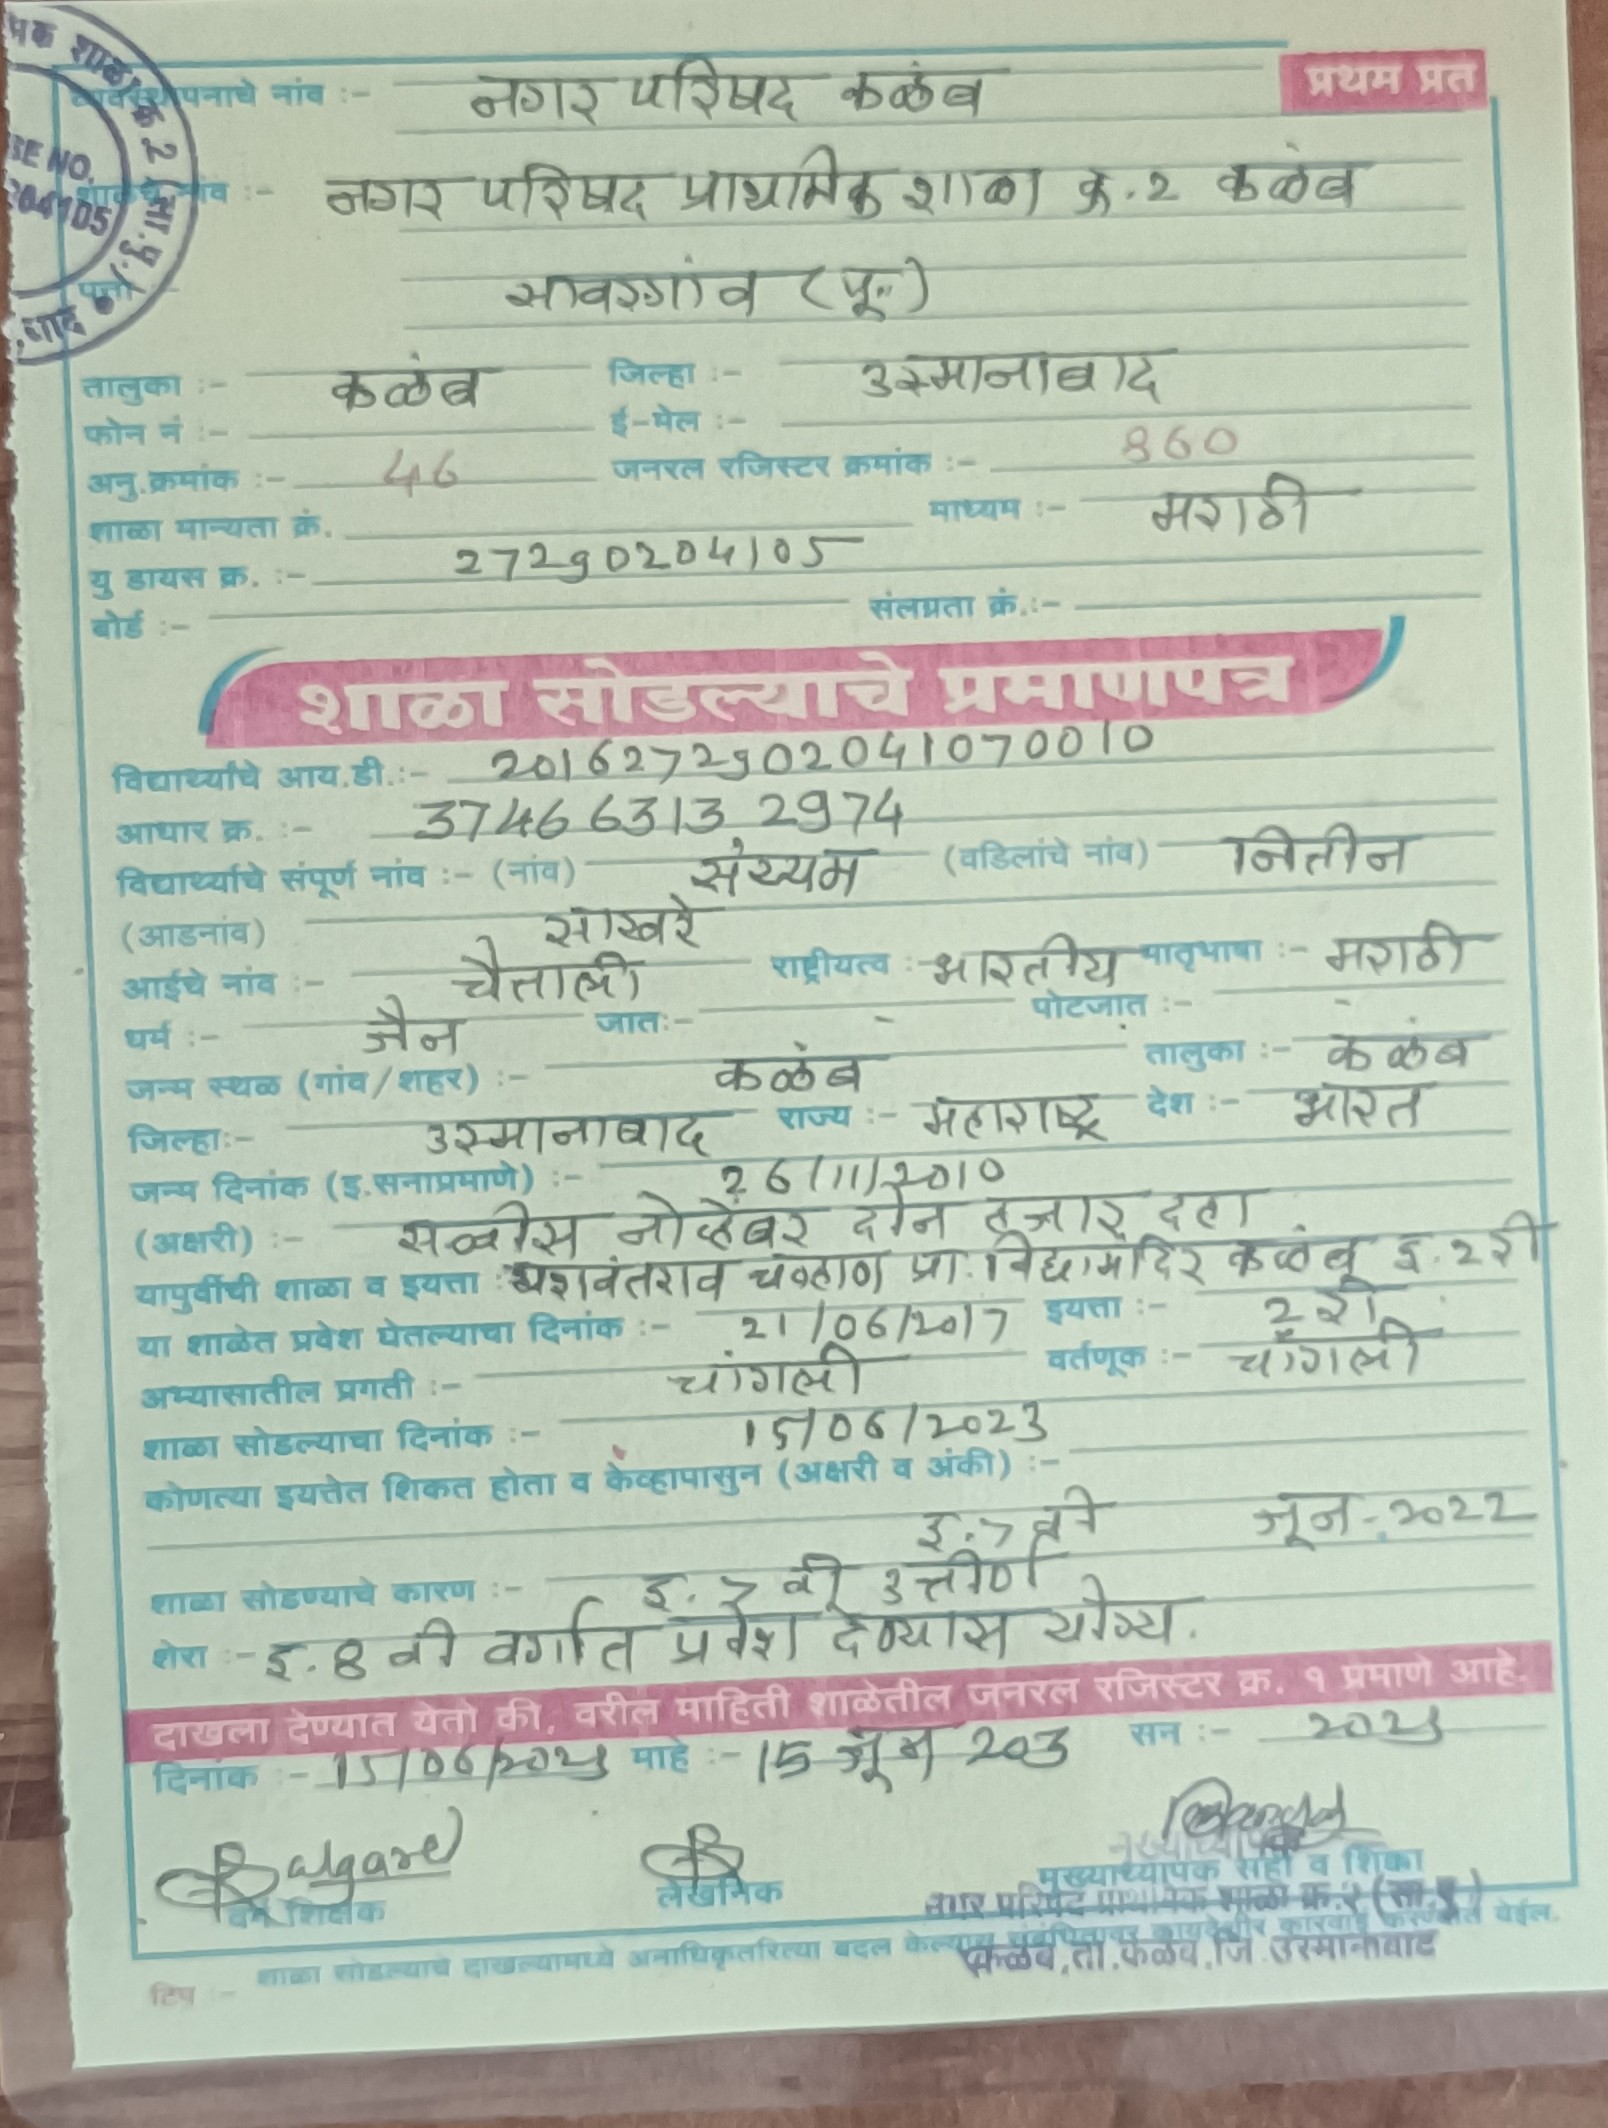 प्रथम प्रत
व्यवस्थापनाचे नांव :- नगर परिषद कळंब
शाळेचे नांव :- नगर परिषद प्राथमिक शाळा क्र.२ कळंब
सावरगांव (पू.)
पत्ता :-
तालुका :- कळंब जिल्हा :- उस्मानाबाद
फोन नं :- ई-मेल :-
अनु.क्रमांक :- 46 जनरल रजिस्टर क्रमांक :- 860
शाळा मान्यता क्रं. माध्यम :- मराठी
यु डायस क्र. :- 27290204105
बोर्ड :- संलग्नता क्रं.:-
शाळा सोडल्याचे प्रमाणपत्र
विद्यार्थ्याचे आय.डी.:- 2016272902041070010
आधार क्र. :- 3746 6313 2974
विद्यार्थ्याचे संपूर्ण नांव :- (नांव) संय्यम (वडिलांचे नांव) नितीन
(आडनांव) साखरे
आईचे नांव :- चैताली राष्ट्रीयत्व :- भारतीय मातृभाषा :- मराठी
धर्म :- जैन जात:- - पोटजात :- -
जन्म स्थळ (गांव/शहर) :- कळंब तालुका :- कळंब
जिल्हा:- उस्मानाबाद राज्य :- महाराष्ट्र देश :- भारत
जन्म दिनांक (इ.सनाप्रमाणे) :- 26/11/2010
(अक्षरी) :- सव्वीस नोव्हेंबर दोन हजार दहा
यापुर्वीची शाळा व इयत्ता :- यशवंतराव चव्हाण प्रा. विद्यामंदिर कळंब इ. 2 री
या शाळेत प्रवेश घेतल्याचा दिनांक :- 21/06/2017 इयत्ता :- 2 री
अभ्यासातील प्रगती :- चांगली वर्तणूक :- चांगली
शाळा सोडल्याचा दिनांक :- 15/06/2023
कोणत्या इयत्तेत शिकत होता व केव्हापासुन (अक्षरी व अंकी) :-
इ. 7 वी जून - 2022
शाळा सोडण्याचे कारण :- इ. 7 वी उत्तीर्ण
शेरा :- इ. 8 वी वर्गात प्रवेश देण्यास योग्य.
दाखला देण्यात येतो की, वरील माहिती शाळेतील जनरल रजिस्टर क्र. १ प्रमाणे आहे.
दिनांक :- 15/06/2023 माहे :- 15 जून 203 सन :- 2023
वर्ग शिक्षक लेखनिक मुख्याध्यापक सही व शिक्का
मुख्याध्यापक
नगर परिषद प्राथमिक शाळा क्र.२ (सा.पु.)
कळंब, ता. कळंब, जि. उस्मानाबाद
टिप :- शाळा सोडल्याचे दाखल्यामध्ये अनाधिकृतरित्या बदल केल्यास संबंधितावर कायदेशीर कारवाई करण्यात येईल.